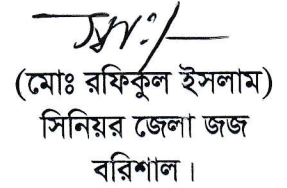 স্বাঃ/-
(মোঃ রফিকুল ইসলাম)
সিনিয়র জেলা জজ
বরিশাল।